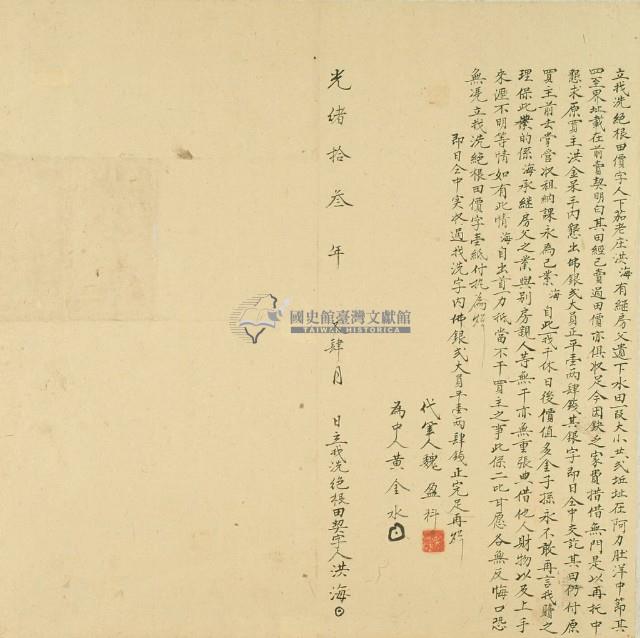 立找洗絕根田價字人下茄老庄洪海有經房父遺下水田一段大小共弍坵址在阿力肚洋中節其
四至界址載在前賣契明白其田經已賣過田價亦俱收足今因缺乏家費措借無門是以再托中
懇求原買主洪金呆手內懇出佛銀弍大員正平壹兩肆錢其銀字即日仝中交訖其田仍付原
買主前去掌管收租納課永為己業海自此一找千休日後價值多金子孫永不敢再言找贖之
理保此業的係海承經房父之業與別房親人等無干亦無重張典借他人財物以及上手
來歷不明等情如有此情海自出首一力抵當不干買主之事此保二比甘愿各無反悔口恐
無凴立找洗絕根田價字壹紙付执為炤
即日仝中实收過找洗字內佛銀弍大員平壹兩肆錢正完足再炤
代筆人魏盈科
為中人黃金水
光緒拾叁年
肆月
日立找洗絕根田契字人洪海
國史館臺灣文獻館
TAIWAN HISTORICA